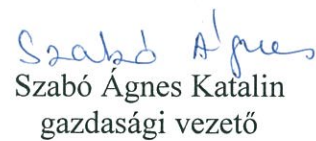 Szabó Ágnes
Szabó Ágnes Katalin
gazdasági vezető